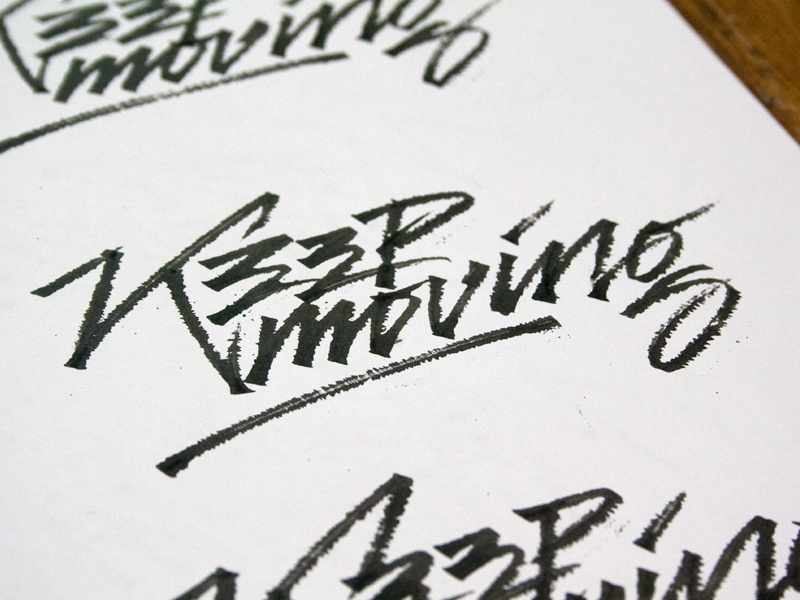 Keep
moving
Keep
moving
Keep
moving